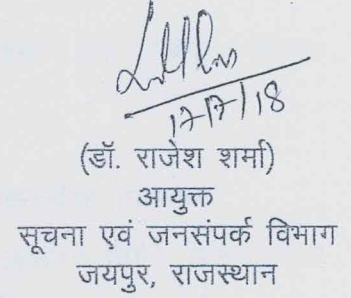 17/7/18
(डॉ. राजेश शर्मा)
आयुक्त
सूचना एवं जनसंपर्क विभाग
जयपुर, राजस्थान